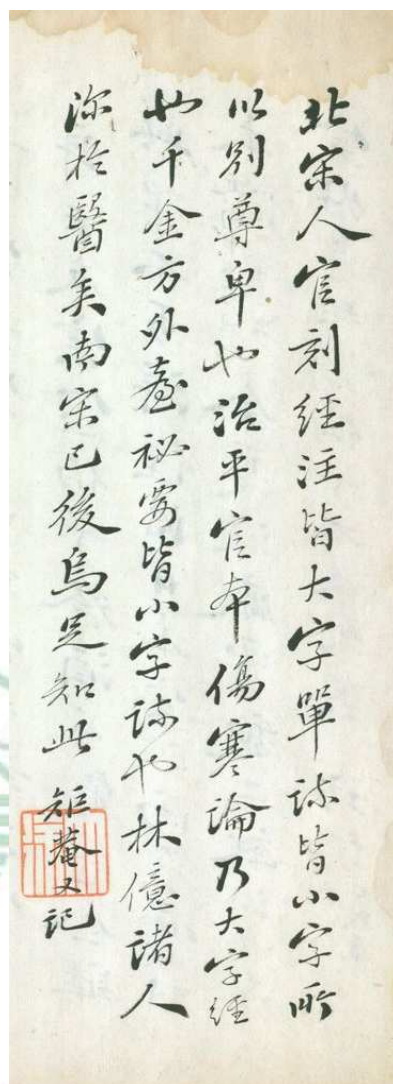 北宋人官刻經注皆大字單疏皆小字所
以別尊卑也治平官本傷寒論乃大字經
也千金方外臺秘要皆小字疏也林億諸人
深於醫矣南宋已後烏足知此矩菴又記